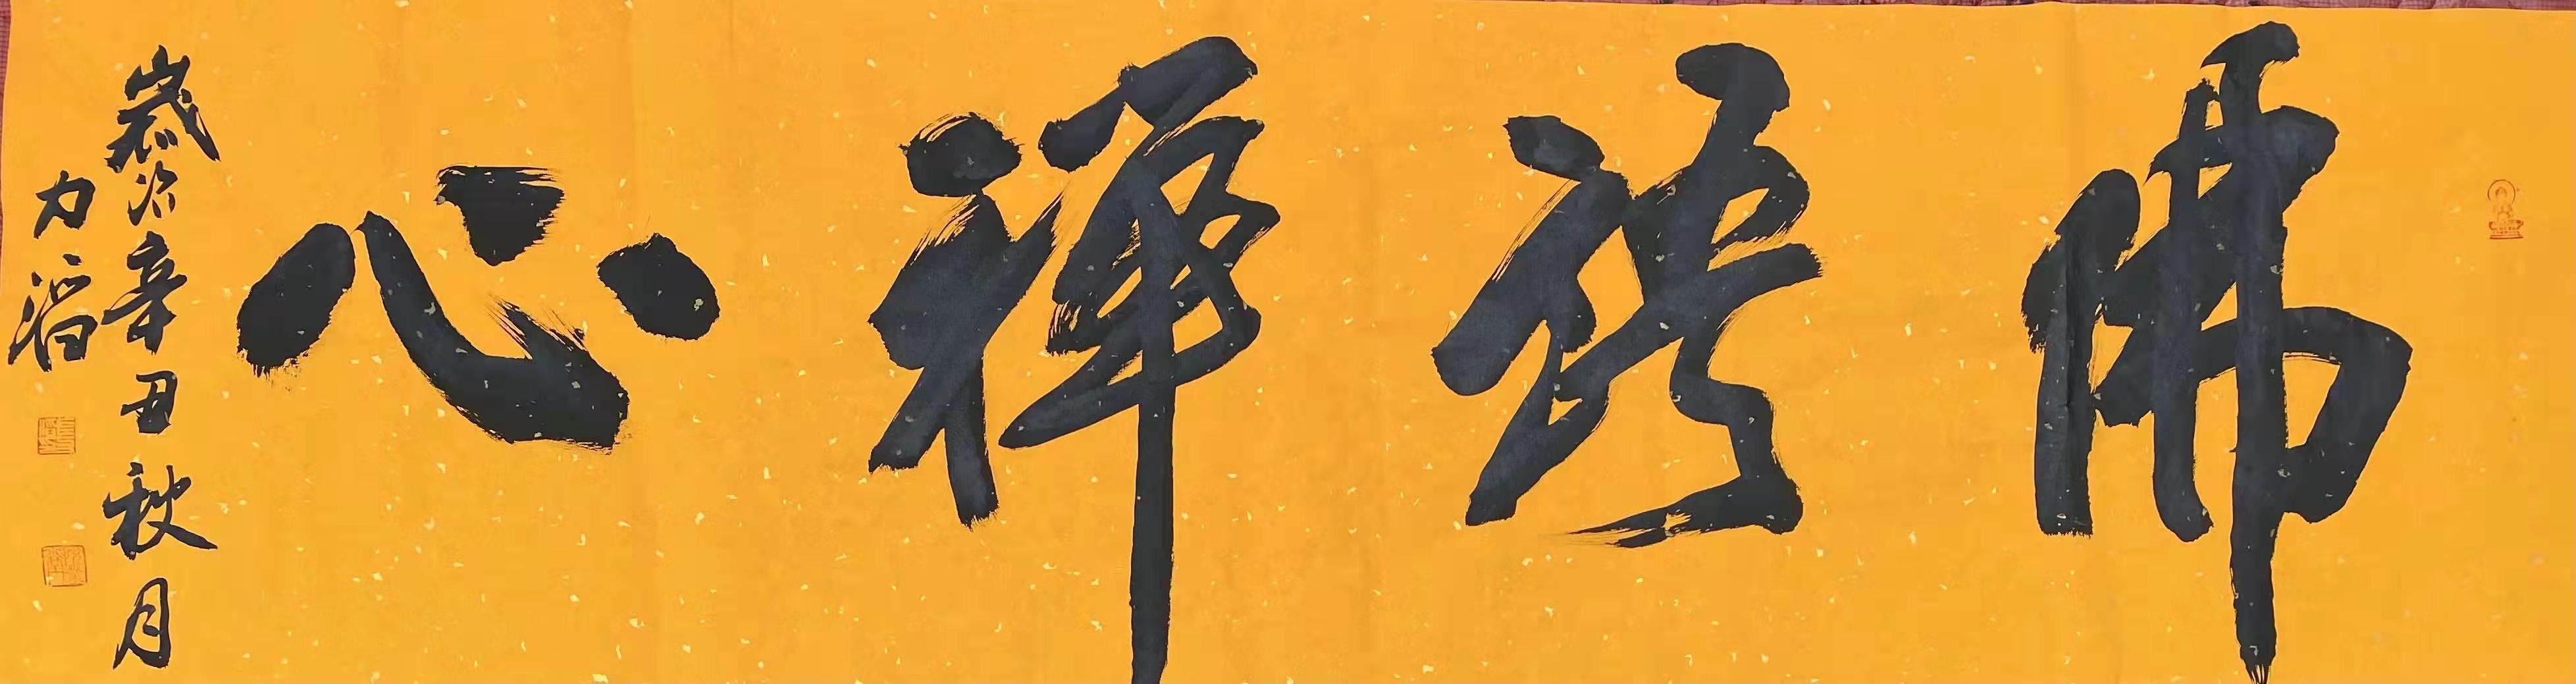 佛缘禅心
歲次辛丑秋月
力滔